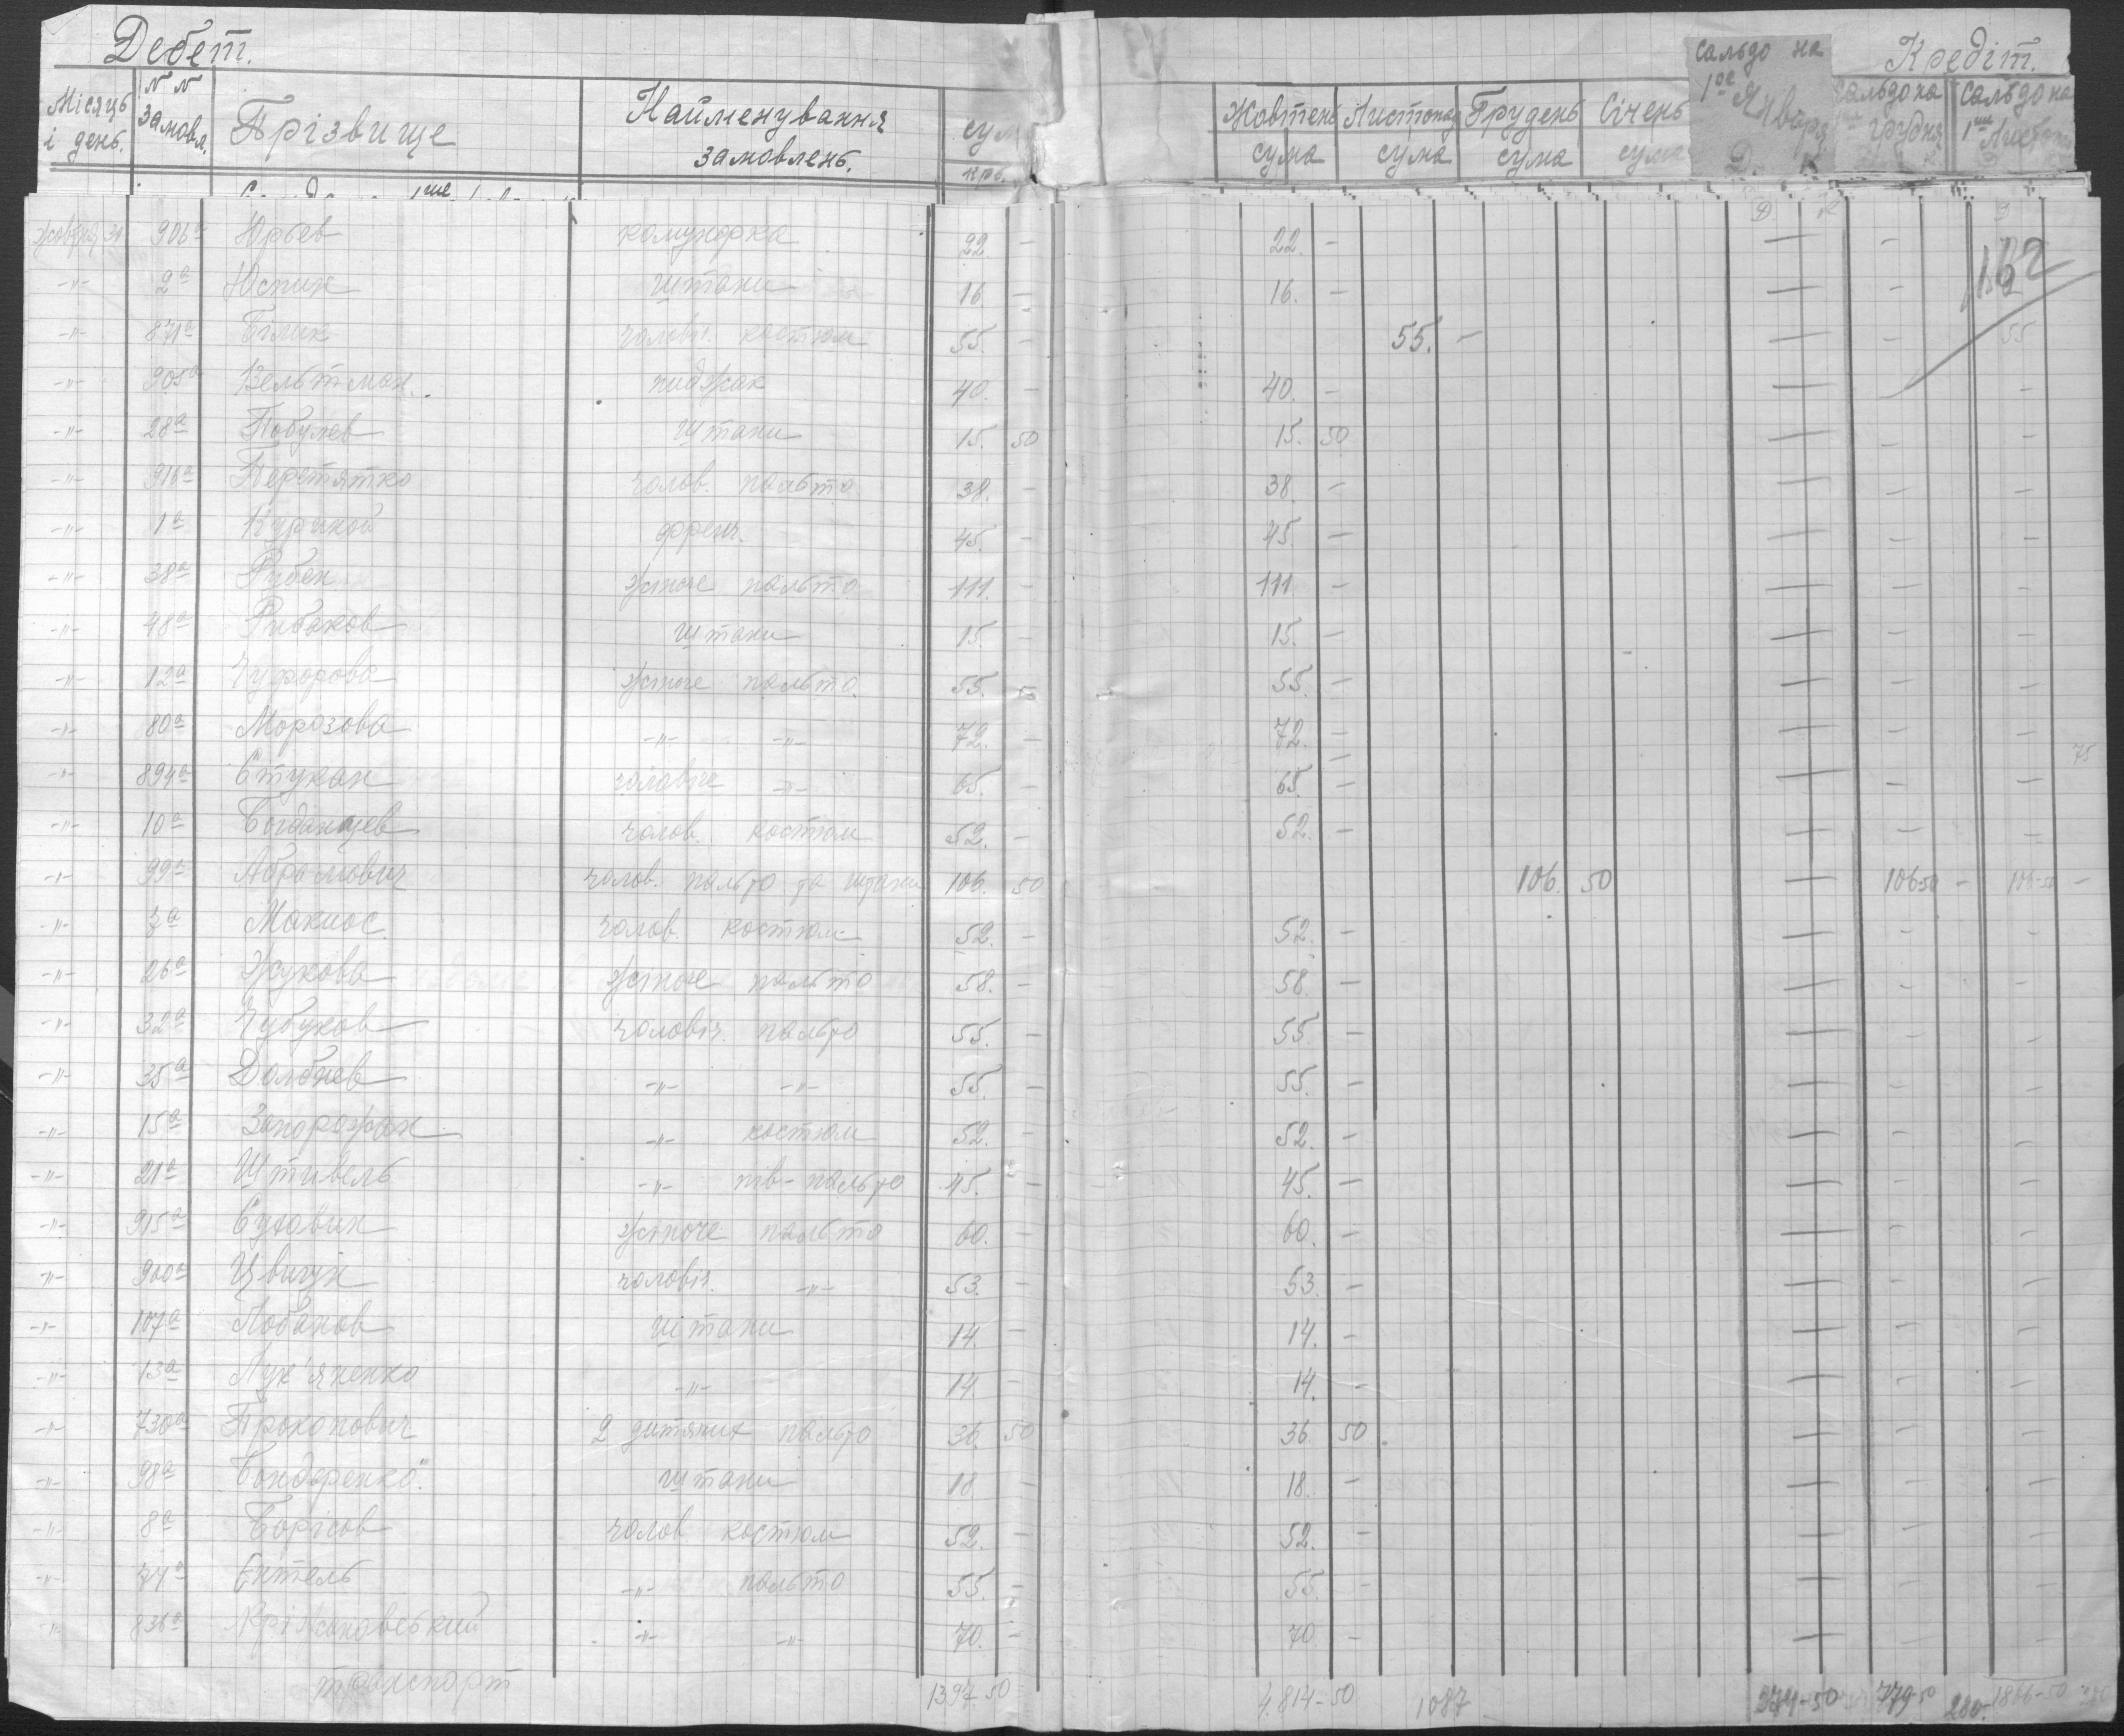 Дебет.
Кредіт.
Місяць і день.
N N замовл.
Прізвище
Найменування замовлень.
сум
крб.
Жовтень сума
Листопад сума
Грудень сума
Січень сума
Сальдо на 1ое Января Д. К
Сальдо на грудня
Сальдо на 1ше Листоп
Жовтня 31 906а Юрьев 22 — 22. —
-"- 2а Юспин штани 16 — 16. — — — 162
-"- 871а Білик чоловіч. костюм 55. — 55. — — — 55
-"- 905а Вельтман. пиджак 40. — 40. — — — —
-"- 28а штани 15. 50 15. 50 — — —
-"- 916а Перетятко чолов. пальто 38. — 38. — — — —
-"- 1а френч. 45. — 45. — — — —
-"- 38а Рубен жіноче пальто 111. — 111 — — — —
-"- 48а Рибаков штани 15. — 15. — — — —
-"- 12а жіноче пальто 55. — 55. — — — —
-"- 80а Морозова -"- -"- 72. — 72. — — — —
-"- 894а Стукан чоловіче -"- 65. — 65. — — — — 75
-"- 10а Богданцев чолов. костюм 52. — 52. — — — —
-"- 99а Абрамович чолов. пальто та штани 106. 50 106. 50 — 106-50 — 106-50 —
-"- 7а Макиос. чолов. костюм 52. — 52. — — — —
-"- 26а Жукова жіноче пальто 58. — 58. — — — —
-"- 32а Чубуков чоловіч. пальто 55. — 55 — — — —
-"- 35а Долбнев -"- -"- 55. — 55. — — — —
-"- 15а Запорожан -"- костюм 52. — 52. — — — —
-"- 21а Штивель -"- пів-пальто 45. — 45. — — — —
-"- 915а Суховин жіноче пальто 60. — 60. — — — —
-"- 900а Цвигун чоловіч. -"- 53. — 53. — — — —
-"- 107а Лобанов штани 14. — 14. — — — —
-"- 13а Лук'яненко -"- 14. — 14. — — — —
-"- 730а Прокопович 2 дитячих пальто 36. 50 36 50 — — —
-"- 98а Бондаренко штани 18 — 18. — — — —
-"- 8а Борісов чолов. костюм 52. — 52. — — — —
-"- 74а Ентель -"- пальто 55. — 55. — — — —
-"- 836а Кріжановський -"- -"- 70. — 70 — — — —
транспорт 1397 50 4.814-50 1087 274-50 779 50 1806-50